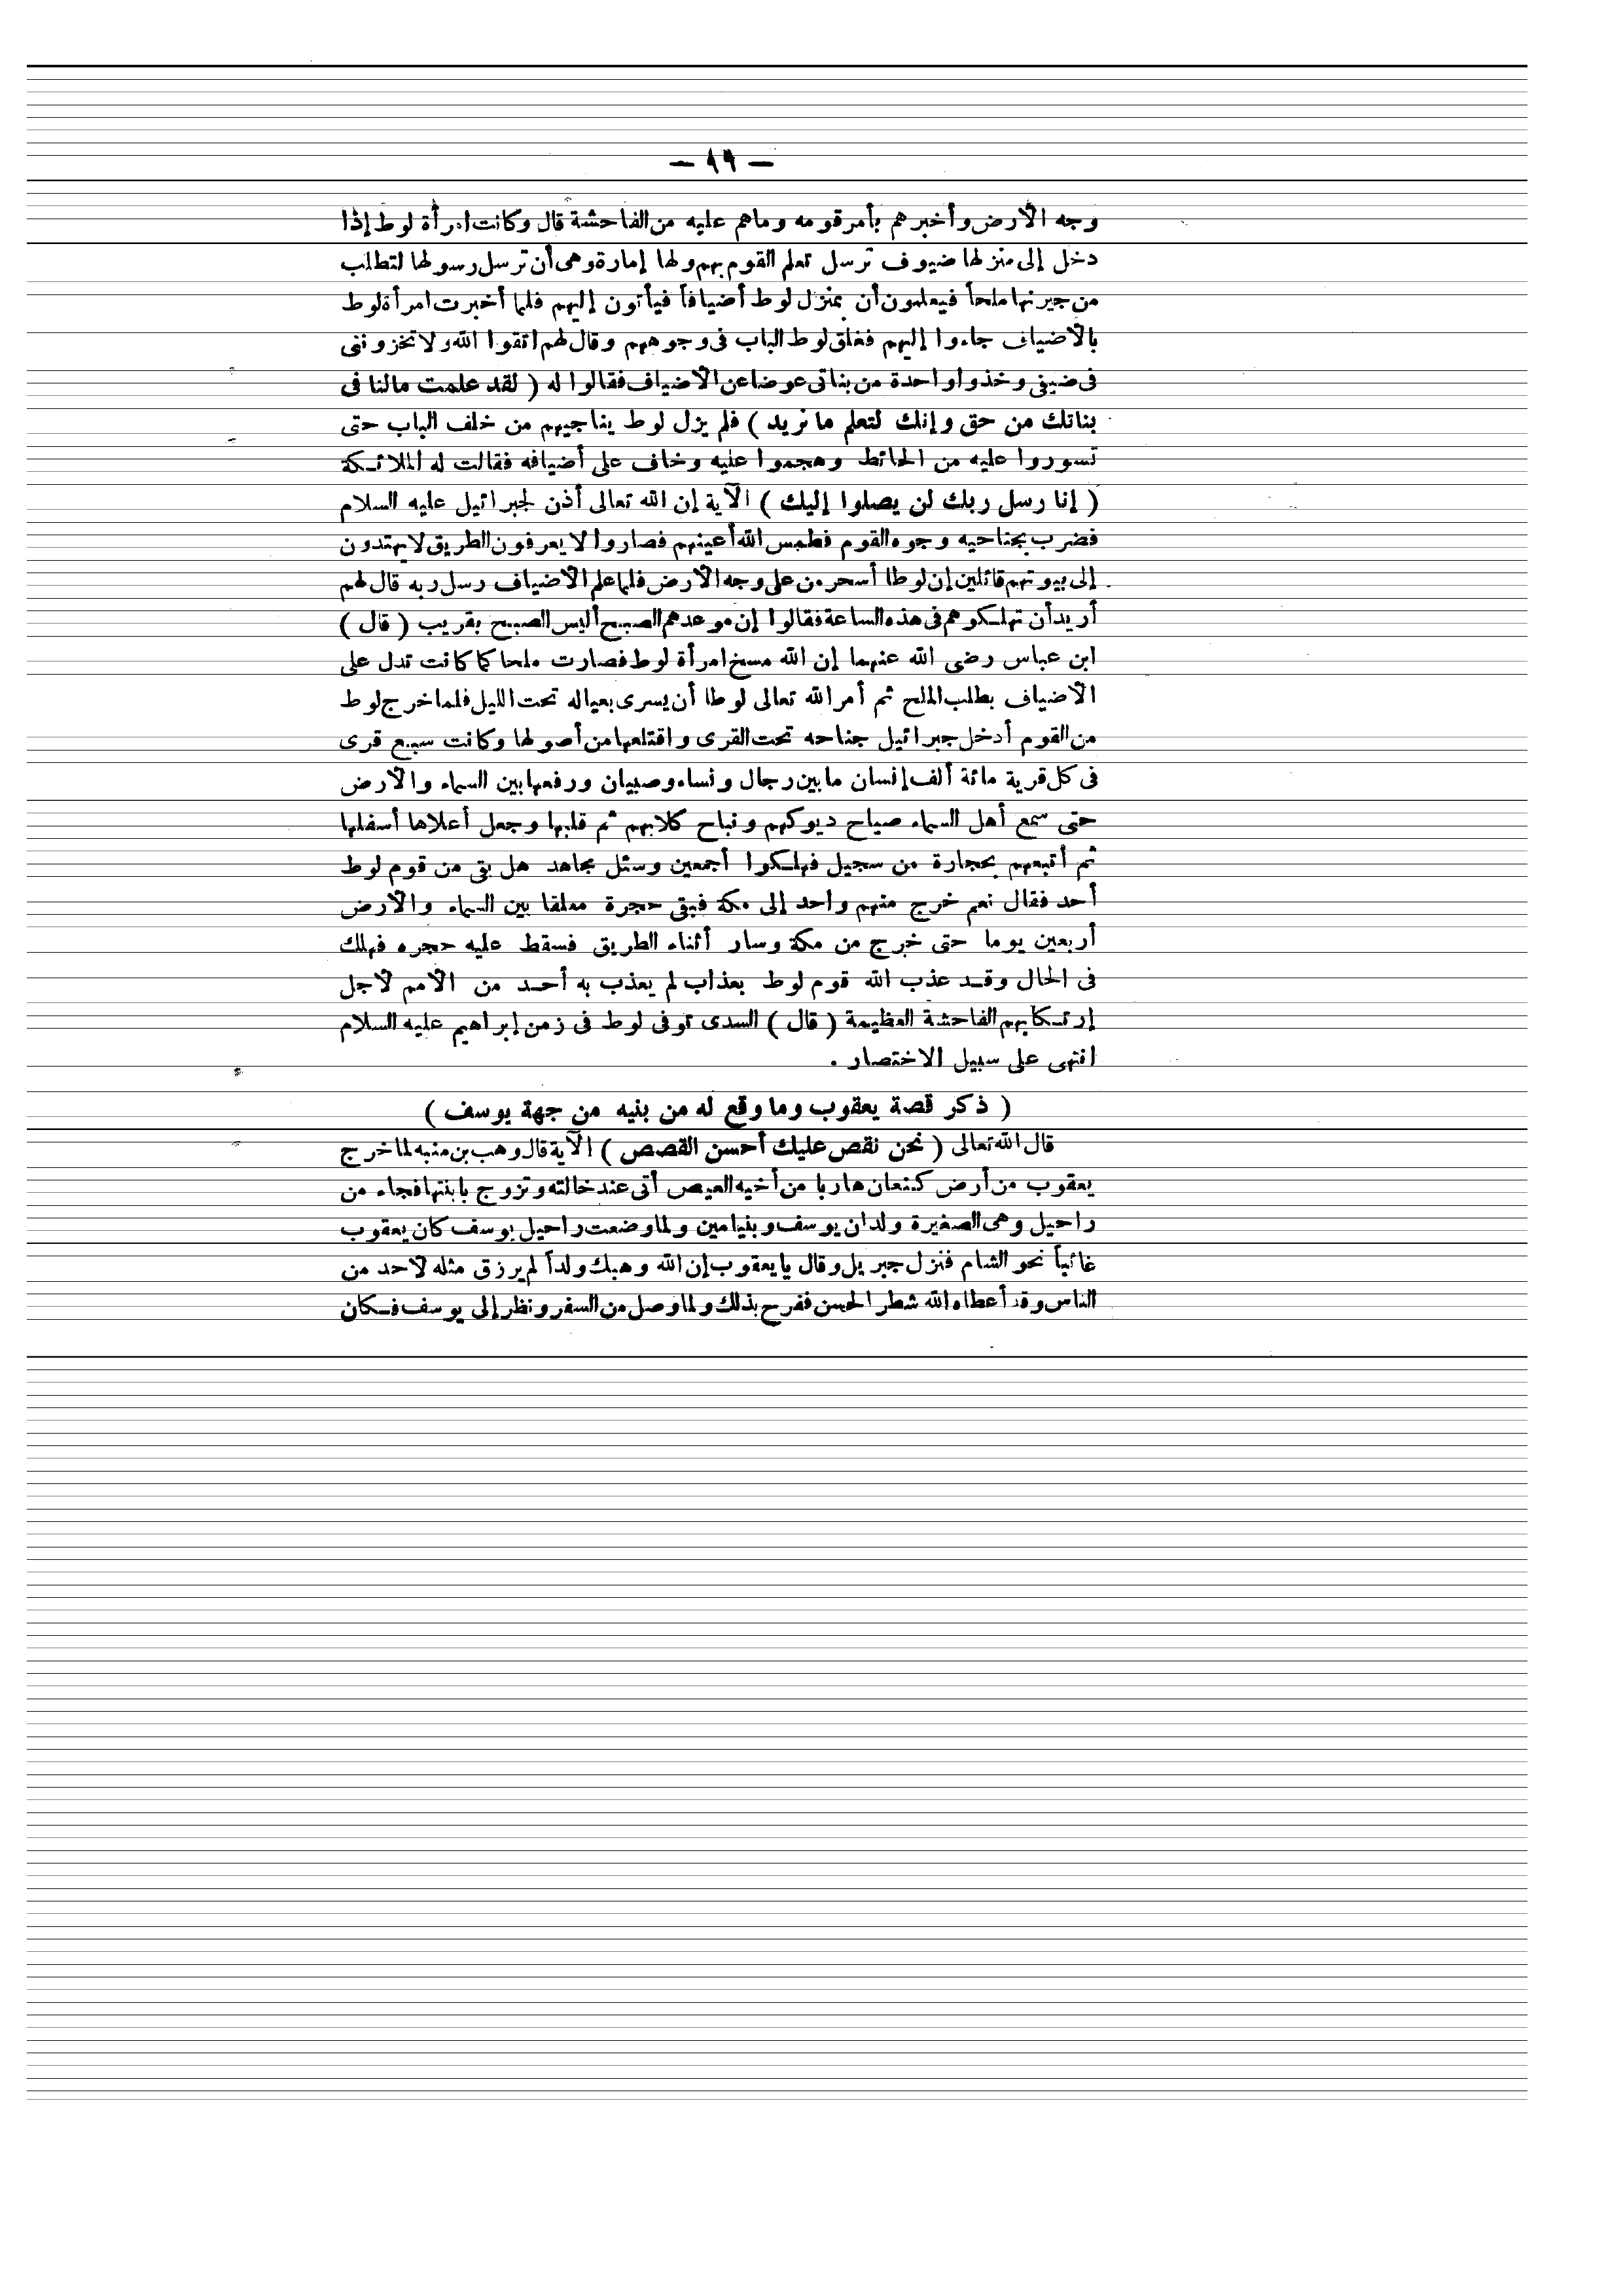 — ٩٩ —
وجه الأرض وأخبرهم بأمر قومه وماهم عليه من الفاحشة قال وكانت امرأة لوط إذا
دخل إلى منزلها ضيوف ترسل تعلم القوم بهم ولها إمارة وهى أن ترسل رسولها لتطلب
من جيرنها ملحاً فيعلمون أن بمنزل لوط أضيافاً فيأتون إليهم فلما أخبرت امرأة لوط
بالأضياف جاءوا إليهم فغلق لوط الباب فى وجوههم وقال لهم اتقوا الله ولا تخزوننى
فى ضيفى وخذوا واحدة من بناتى عوضا عن الأضياف فقالوا له ( لقد علمت مالنا فى
بناتك من حق وإنك لتعلم ما نريد ) فلم يزل لوط يناجيهم من خلف الباب حتى
تسوروا عليه من الحائط وهجموا عليه وخاف على أضيافه فقالت له الملائكة
( إنا رسل ربك لن يصلوا إليك ) الآية إن الله تعالى أذن لجبرائيل عليه السلام
فضرب بجناحيه وجوه القوم فطمس الله أعينهم فصاروا لا يعرفون الطريق لايهتدون
إلى بيوتهم قائلين إن لوطا أسحر من على وجه الأرض فلما علم الأضياف رسل ربه قال لهم
أريد أن تهلكوهم فى هذه الساعة فقالوا إن موعدهم الصبح أليس الصبح بقريب ( قال )
ابن عباس رضى الله عنهما إن الله مسخ امرأة لوط فصارت ملحا كما كانت تدل على
الأضياف بطلب الملح ثم أمر الله تعالى لوطا أن يسرى بعياله تحت الليل فلما خرج لوط
من القوم أدخل جبرائيل جناحه تحت القرى واقتلعها من أصولها وكانت سبع قرى
فى كل قرية مائة ألف إنسان ما بين رجال ونساء وصبيان ورفعها بين السماء والأرض
حتى سمع أهل السماء صياح ديوكهم ونباح كلابهم ثم قلبها وجعل أعلاها أسفلها
ثم أتبعهم بحجارة من سجيل فهلكوا أجمعين وسئل مجاهد هل بقى من قوم لوط
أحد فقال نعم خرج منهم واحد إلى مكة فبقى حجرة معلقا بين السماء والأرض
أربعين يوما حتى خرج من مكة وسار أثناء الطريق فسقط عليه حجره فهلك
فى الحال وقد عذب الله قوم لوط بعذاب لم يعذب به أحد من الأمم لأجل
إرتكابهم الفاحشة العظيمة ( قال ) السدى توفى لوط فى زمن إبراهيم عليه السلام
انتهى على سبيل الاختصار .
( ذكر قصة يعقوب وما وقع له من بنيه من جهة يوسف )
قال الله تعالى ( نحن نقص عليك أحسن القصص ) الآية قال وهب بن منبه لما خرج
يعقوب من أرض كنعان هاربا من أخيه العيص أتى عند خالته وتزوج بابنتها فجاء من
راحيل وهى الصغيرة ولدان يوسف وبنيامين ولما وضعت راحيل يوسف كان يعقوب
غائباً نحو الشام فنزل جبريل وقال يا يعقوب إن الله وهبك ولداً لم يرزق مثله لأحد من
الناس وقد أعطاه الله شطر الحسن ففرح بذلك ولما وصل من السفر ونظر إلى يوسف فكان